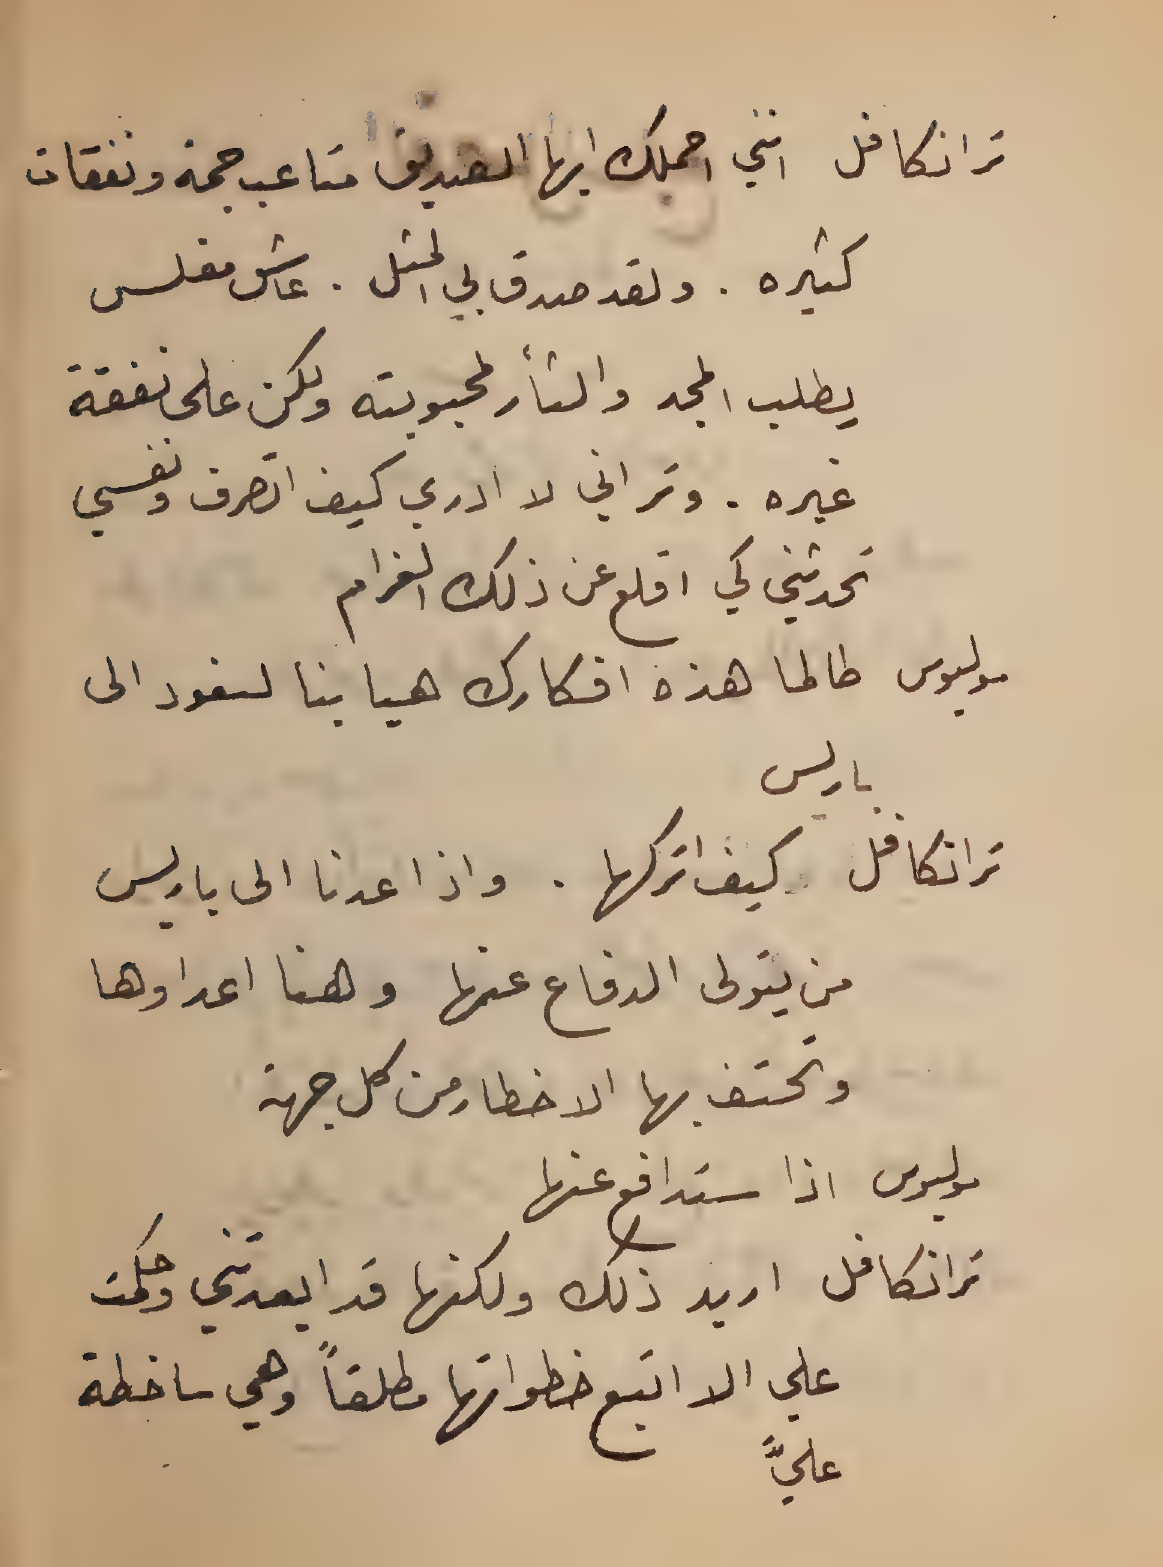 ترانكافل انني احملك ايها الصديق متاعب جمة ونفقات
كثيره . ولقد صدق بي المثل . عاشق مفلس
يطلب المجد والثأر لمحبوبته ولكن على نفقة
غيره . وتراني لا ادري كيف اتصرف ونفسي
تحدثني كي اقلع عن ذلك الغرام
بوليوس طالما هذه افكارك هيا بنا لنعود الى
باريس
ترانكافل كيف اتركها . واذا عدنا الى باريس
من يتولى الدفاع عنها وهنا اعداوها
وتحتف بها الاخطار من كل جهة
بوليوس اذا ستدافع عنها
ترانكافل اريد ذلك ولكنها قد ابعدتني وحكمت
علي الا اتبع خطواتها مطلقاً وهي ساخطة
عليَّ